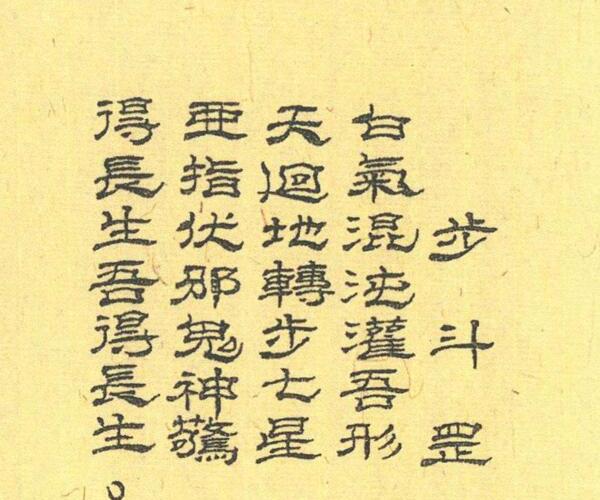 步斗罡
白氣混沌灌吾形
天迴地轉步七星
亚指伏邪鬼神驚
得長生吾得長生。